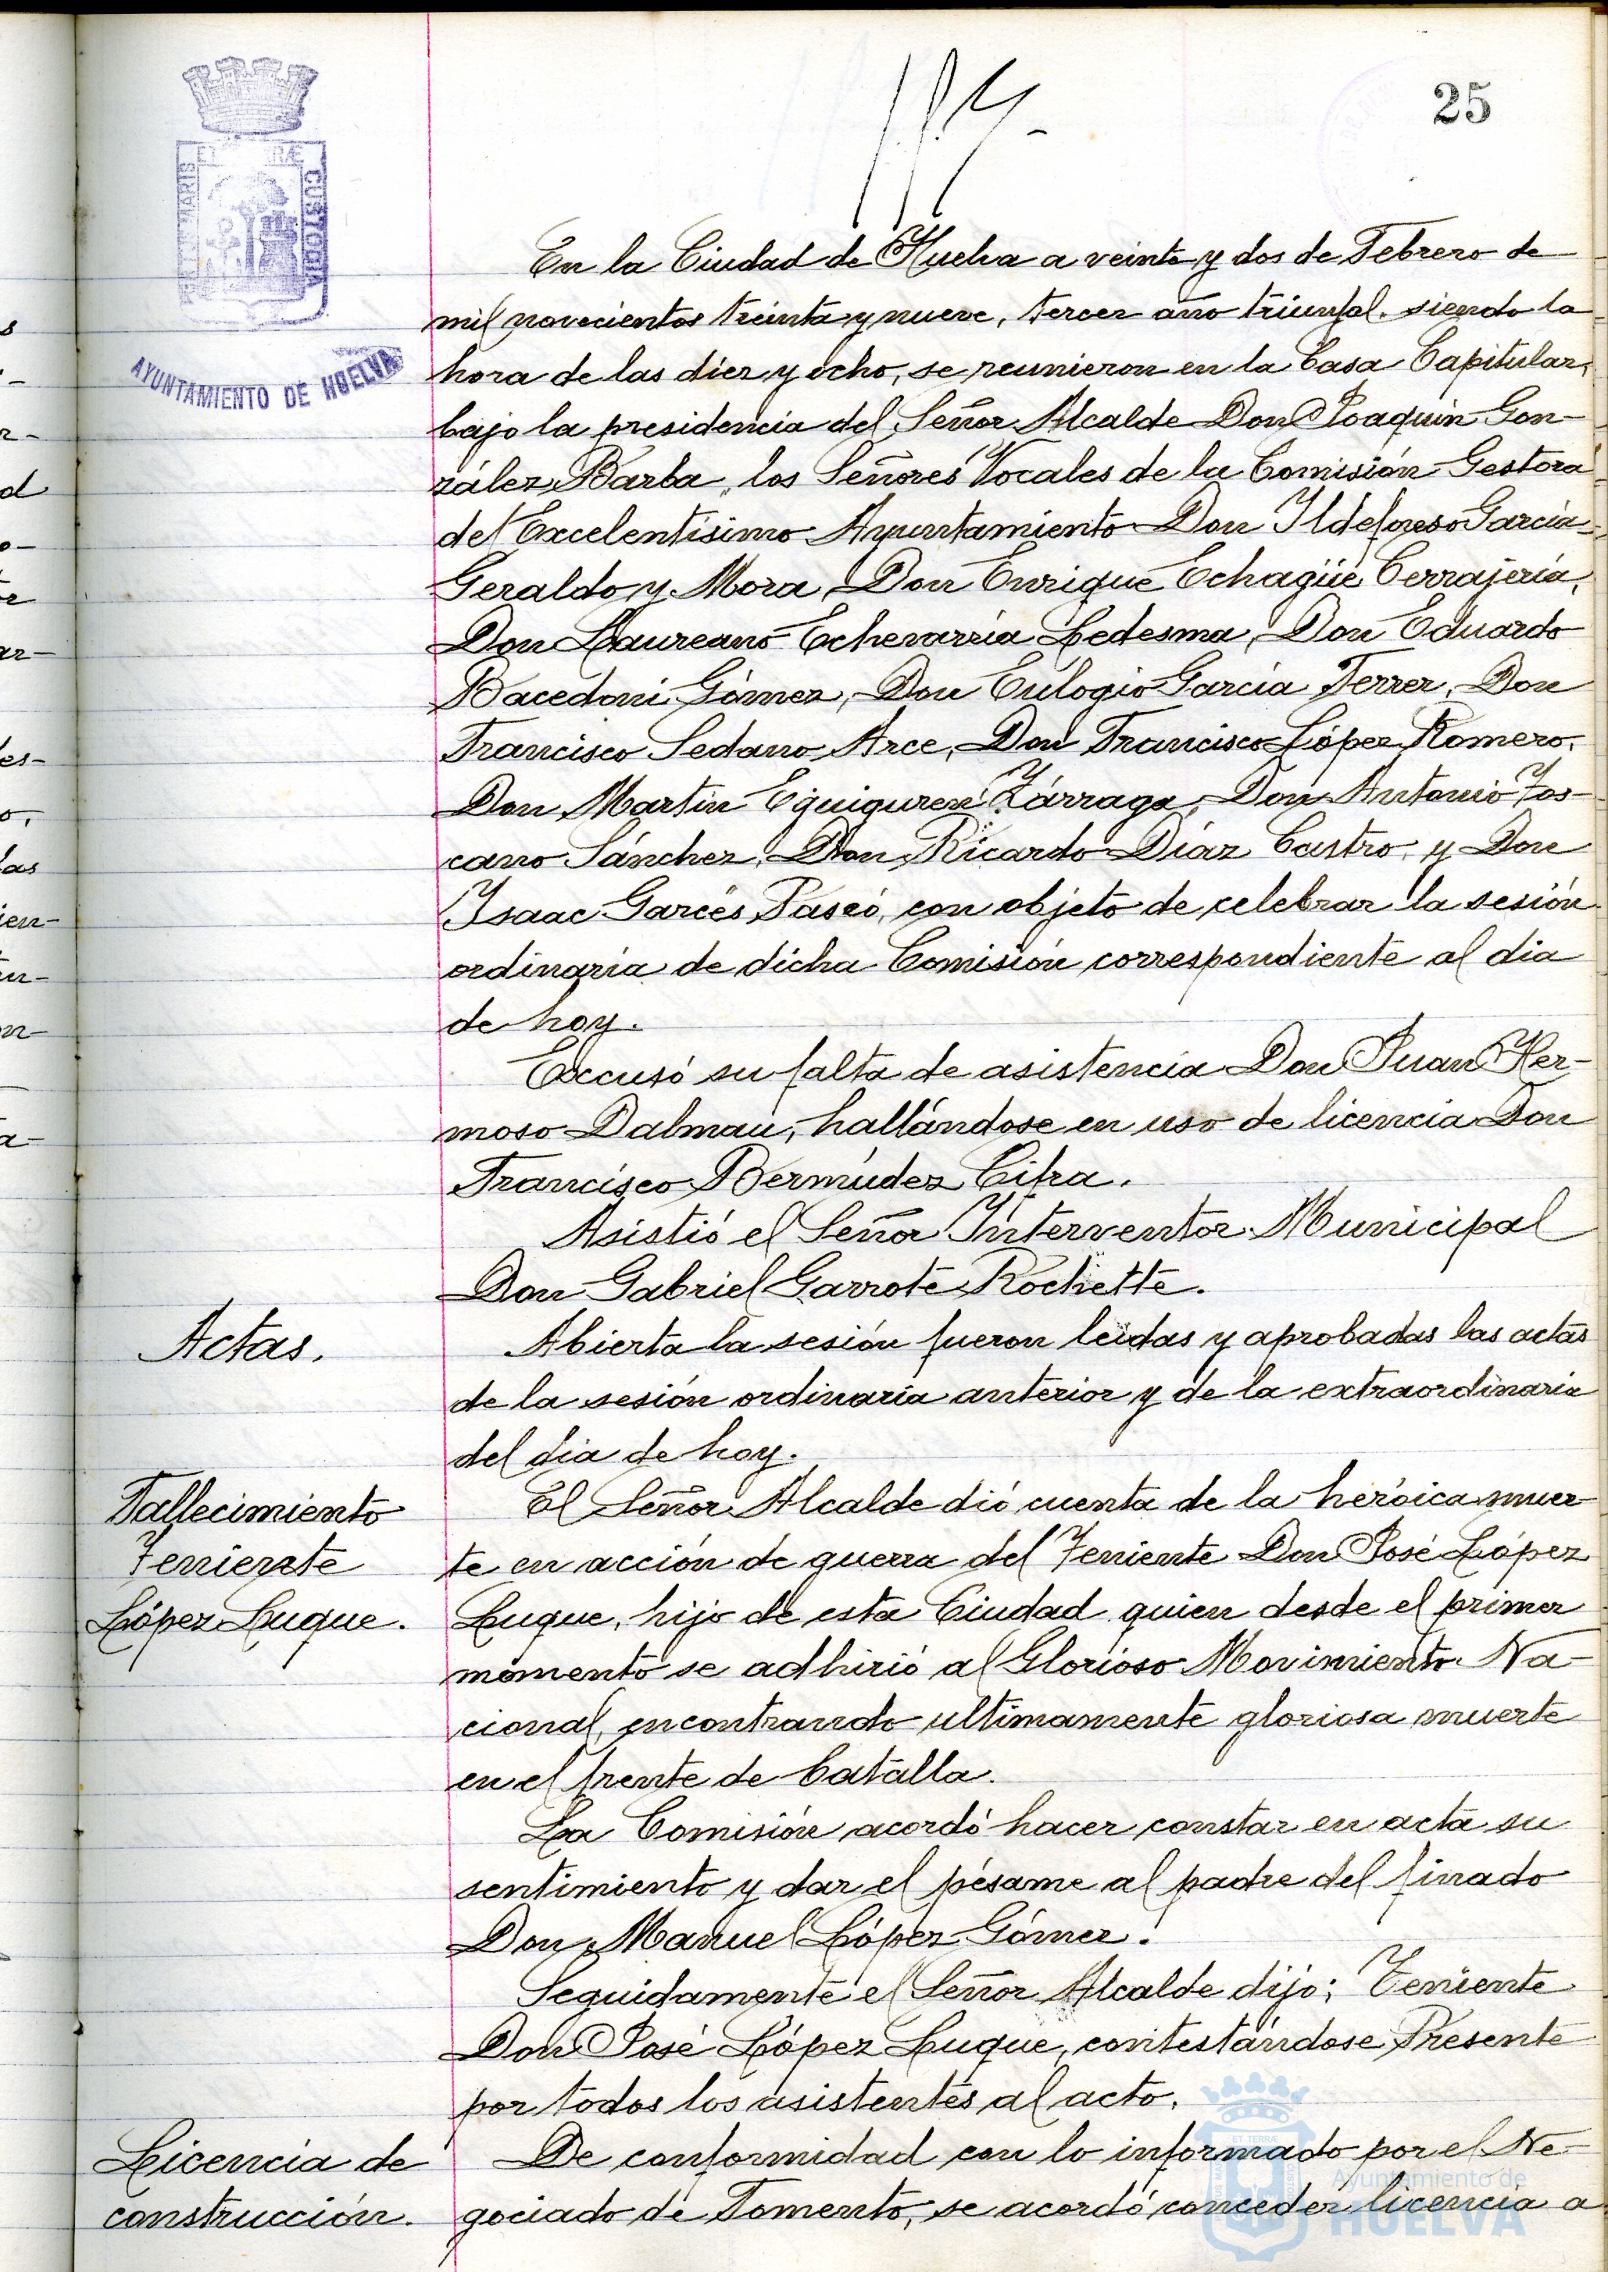 25
PORTUS MARIS ET TERRÆ CUSTODIA
AYUNTAMIENTO DE HUELVA
En la Ciudad de Huelva a veinte y dos de Febrero de
mil novecientos treinta y nueve, tercer año triunfal, siendo la
hora de las diez y ocho, se reunieron en la Casa Capitular,
bajo la presidencia del Señor Alcalde Don Joaquín Gon-
zález Barba, los Señores Vocales de la Comisión Gestora
del Excelentísimo Ayuntamiento Don Ildefonso García-
Geraldo y Mora, Don Enrique Echagüe Cerrajería,
Don Laureano Echevarría Ledesma, Don Eduardo
Bacedoni Gómez, Don Eulogio García Ferrer, Don
Francisco Sedano Arce, Don Francisco López Romero,
Don Martín Eguiguren Zárraga, Don Antonio Tos-
cano Sánchez, Don Ricardo Díaz Castro, y Don
Isaac Garcés Paseó, con objeto de celebrar la sesión
ordinaria de dicha Comisión correspondiente al dia
de hoy.
Excusó su falta de asistencia Don Juan Her-
moso Dalmau, hallándose en uso de licencia Don
Francisco Bermúdez Cifra.
Asistió el Señor Interventor Municipal
Don Gabriel Garrote Rochette.
Actas.
Abierta la sesión fueron leídas y aprobadas las actas
de la sesión ordinaria anterior y de la extraordinaria
del dia de hoy.
Fallecimiento
Teniente
López Luque.
El Señor Alcalde dió cuenta de la heróica muer-
te en acción de guerra del Teniente Don José López
Luque, hijo de esta Ciudad quien desde el primer
momento se adhirió al Glorioso Movimiento Na-
cional, encontrando ultimamente gloriosa muerte
en el frente de batalla.
La Comisión acordó hacer constar en acta su
sentimiento y dar el pésame al padre del finado
Don Manuel López Gómez.
Seguidamente el Señor Alcalde dijo; Teniente
Don José López Luque, contestándose Presente
por todos los asistentes al acto.
Licencia de
construcción.
De conformidad con lo informado por el Ne-
gociado de Fomento, se acordó conceder licencia a
Ayuntamiento de
HUELVA